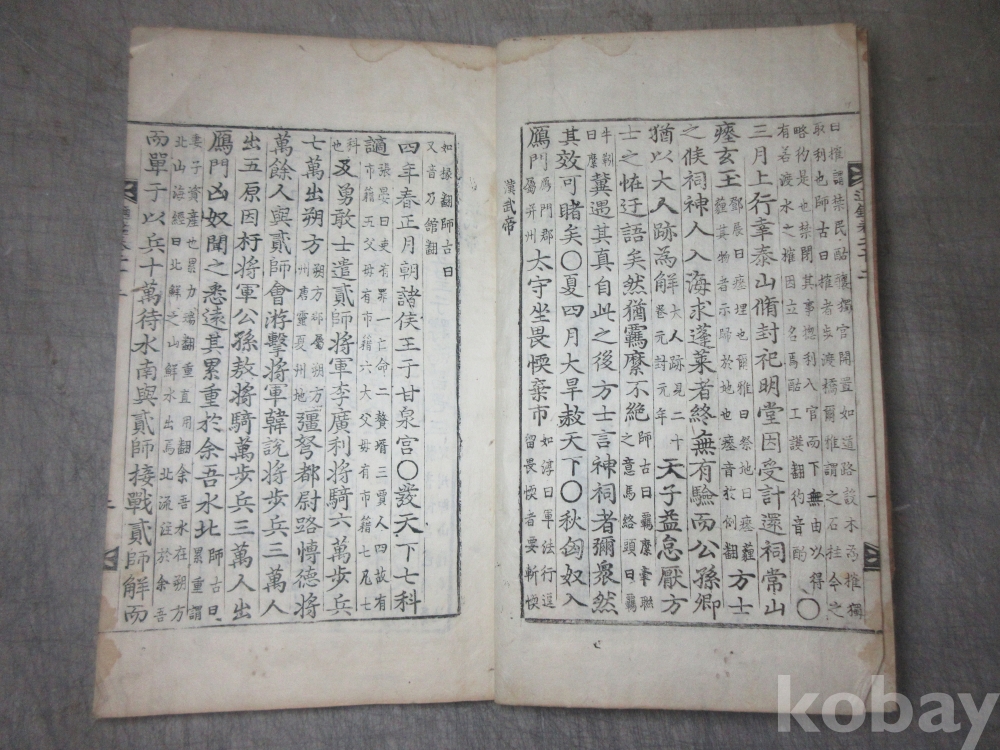 通鑑卷二十二
曰榷謂禁民酤釀獨官開置如道路設木為榷獨
取利也師古曰榷者步渡橋爾雅謂之石杠今之
略彴是也禁閉其事總利入官而下無由以得
有若渡水之榷因立名焉酤工護翻彴音酌○
三月上行幸泰山脩封祀明堂因受計還祠常山
瘞玄玉鄧展曰瘞埋也爾雅曰祭地曰瘞薶薶其物者示歸於地也瘞音於例翻方士
之候祠神人入海求蓬萊者終無有驗而公孫卿
猶以大人跡為解大人跡見二十卷元封元年天子益怠厭方
士之怪迂語矣然猶羈縻不絕師古曰羈縻牽聯之意馬絡頭曰羈
牛靷曰縻冀遇其真自此之後方士言神祠者彌衆然
其效可睹矣○夏四月大旱赦天下○秋匈奴入
鴈門鴈門郡屬并州太守坐畏愞棄市如淳曰軍法行逗留畏愞者要斬愞
漢武帝
如掾翻師古曰又音乃館翻
四年春正月朝諸侯王于甘泉宮○發天下七科
讁張晏曰吏有罪一亡命二贅壻三賈人四故有市籍五父母有市籍六大父母有市籍七凡七
科也及勇敢士遣貳師將軍李廣利將騎六萬步兵
七萬出朔方朔方郡屬朔方州唐靈夏州地彊弩都尉路愽德將
萬餘人與貳師會游擊將軍韓說將步兵三萬人
出五原因杅將軍公孫敖將騎萬步兵三萬人出
鴈門匈奴聞之悉遠其累重於余吾水北師古曰累重謂
妻子資產也累力瑞翻重直用翻余吾水在朔方
北山海經曰北鮮之山鮮水出焉北流注於余吾
而單于以兵十萬待水南與貳師接戰貳師解而
kobay